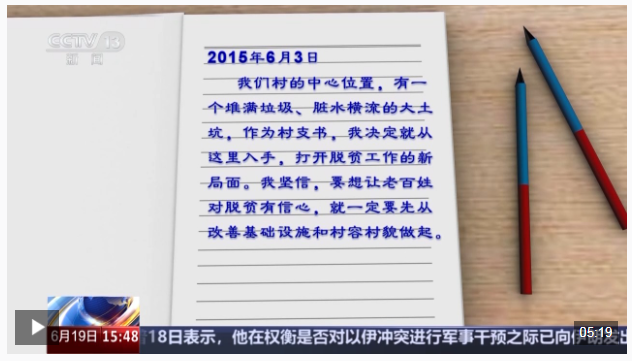 CCTV 13
新闻
2015年6月3日
我们村的中心位置，有一
个堆满垃圾、脏水横流的大土
坑，作为村支书，我决定就从
这里入手，打开脱贫工作的新
局面。我坚信，要想让老百姓
对脱贫有信心，就一定要先从
改善基础设施和村容村貌做起。
05:19
6月19日 15:48
18日表示，他在权衡是否对以伊冲突进行军事干预之际已向伊朗发出